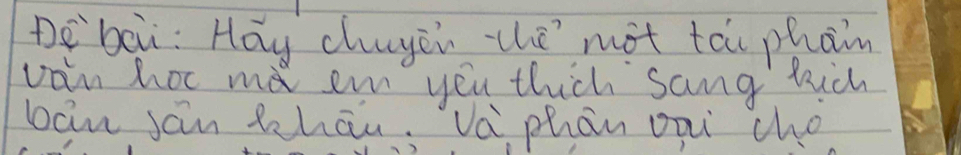 Đề bài: Hãy chuyển thể một tác phẩm
văn học mà em yêu thích sang kịch
bản sân khấu. Và phân vai cho